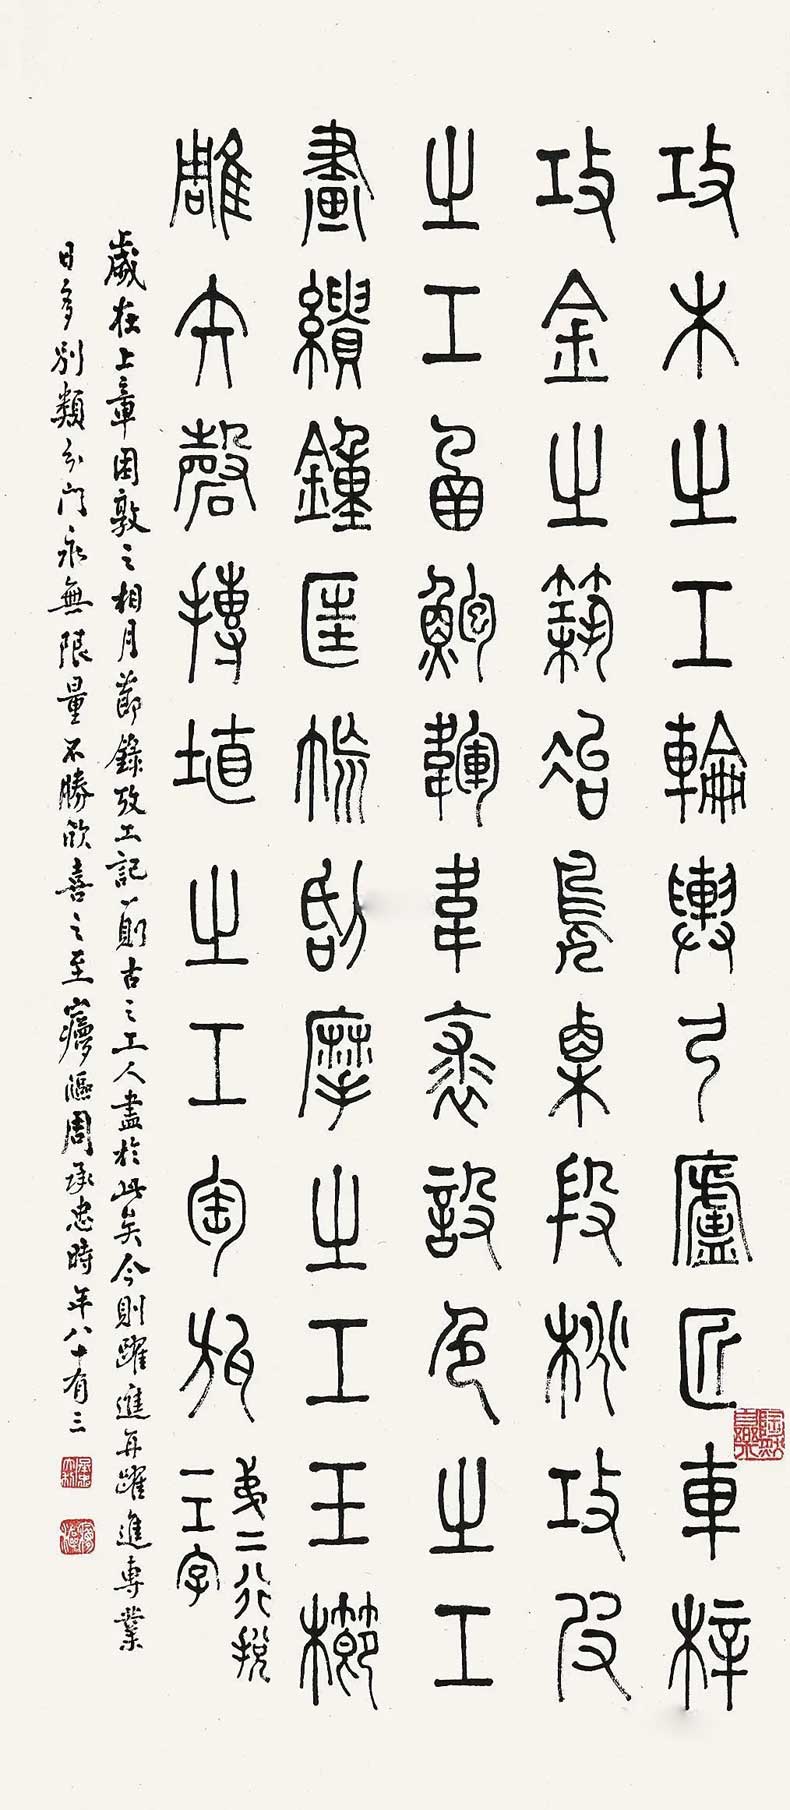 攻木之工輪輿弓廬匠車梓
攻金之築冶鳧㮚段桃攻皮
之工函鮑韗韋裘設色之工
畫繢鐘匡㡛刮摩之工玉楖
雕矢磬摶埴之工陶瓬
弟二行脫
一工字
歲在上章困敦之相月節錄攷工記一則古之工人盡於此矣今則躍進再躍進專業
日多別類分門永無限量不勝欣喜之至漚周承忠時年八十有三